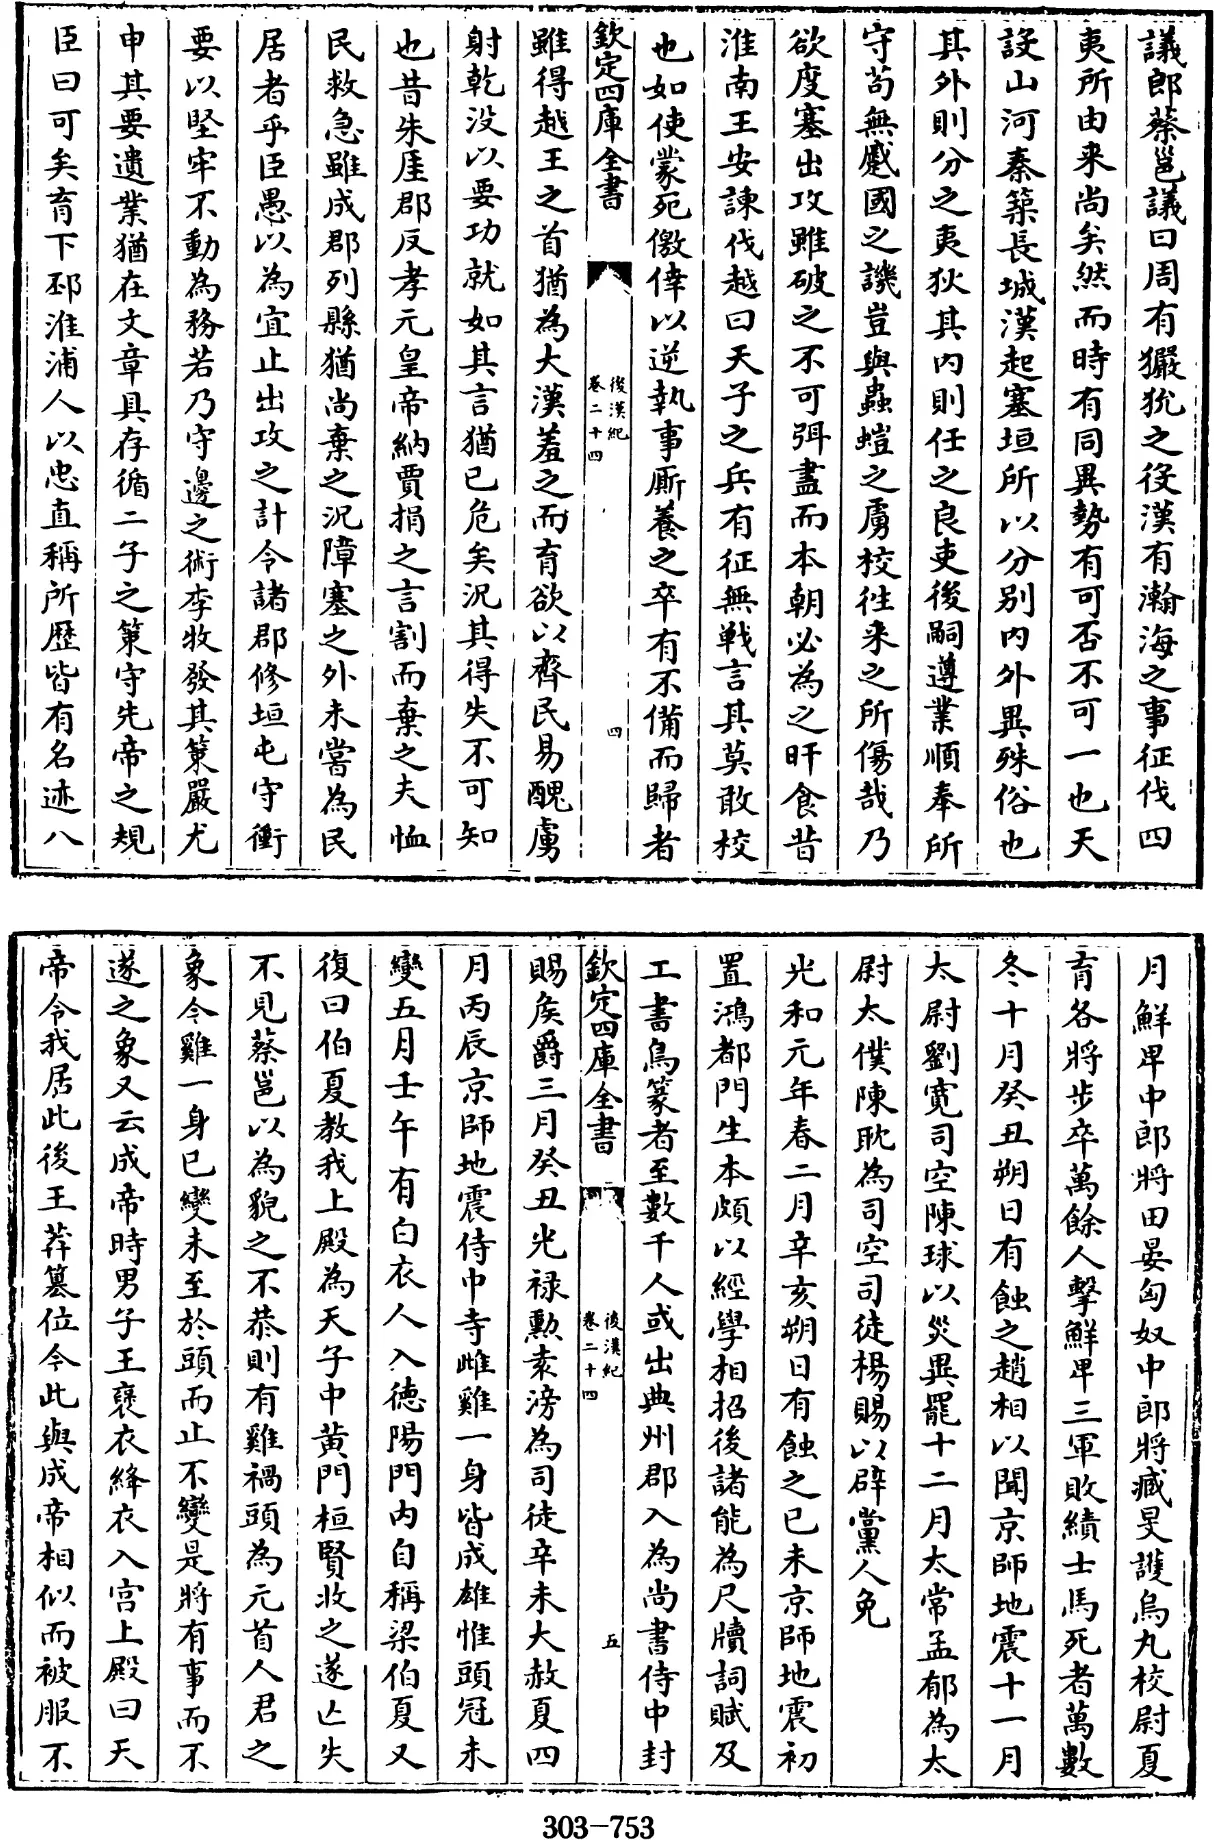 議郎蔡邕議曰周有玁狁之役漢有瀚海之事征伐四
夷所由来尚矣然而時有同異勢有可否不可一也天
設山河秦築長城漢起塞垣所以分別内外異殊俗也
其外則分之夷狄其内則任之良吏後嗣遵業順奉所
守苟無慼國之譏豈與蟲螘之虜校徃来之所傷哉乃
欲度塞出攻雖破之不可殫盡而本朝必為之旰食昔
淮南王安諫伐越曰天子之兵有征無戰言其莫敢校
也如使蒙死儌倖以逆執事厮養之卒有不備而歸者
欽定四庫全書
後漢紀
卷二十四
四
雖得越王之首猶為大漢羞之而育欲以齊民易醜虜
射乾没以要功就如其言猶已危矣況其得失不可知
也昔朱厓郡反孝元皇帝納賈捐之言割而棄之夫恤
民救急雖成郡列縣猶尚棄之況障塞之外未嘗為民
居者乎臣愚以為宜止出攻之計令諸郡修垣屯守衝
要以堅牢不動為務若乃守邊之術李牧發其策嚴尤
申其要遺業猶在文章具存循二子之策守先帝之規
臣曰可矣育下邳淮浦人以忠直稱所歷皆有名迹八
月鮮卑中郎將田晏匈奴中郎將臧旻護烏丸校尉夏
育各將步卒萬餘人擊鮮卑三軍敗績士馬死者萬數
冬十月癸丑朔日有蝕之趙相以聞京師地震十一月
太尉劉寛司空陳球以災異罷十二月太常孟郁為太
尉太僕陳耽為司空司徒楊賜以辟黨人免
光和元年春二月辛亥朔日有蝕之已未京師地震初
置鴻都門生本頗以經學相招後諸能為尺牘詞賦及
工書鳥篆者至數千人或出典州郡入為尚書侍中封
欽定四庫全書
後漢紀
卷二十四
五
賜矦爵三月癸丑光禄勲袁滂為司徒辛未大赦夏四
月丙辰京師地震侍中寺雌雞一身皆成雄惟頭冠未
變五月壬午有白衣人入德陽門内自稱梁伯夏又
復曰伯夏教我上殿為天子中黄門桓賢收之遂亾失
不見蔡邕以為貌之不恭則有雞禍頭為元首人君之
象今雞一身已變未至於頭而止不變是將有事而不
遂之象又云成帝時男子王襃衣絳衣入宫上殿曰天
帝令我居此後王莽簒位今此與成帝相似而被服不
303-753